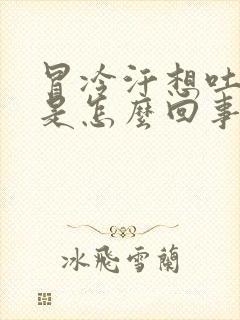 冒冷汗想吐
是怎麼回事
冰飛雪蘭